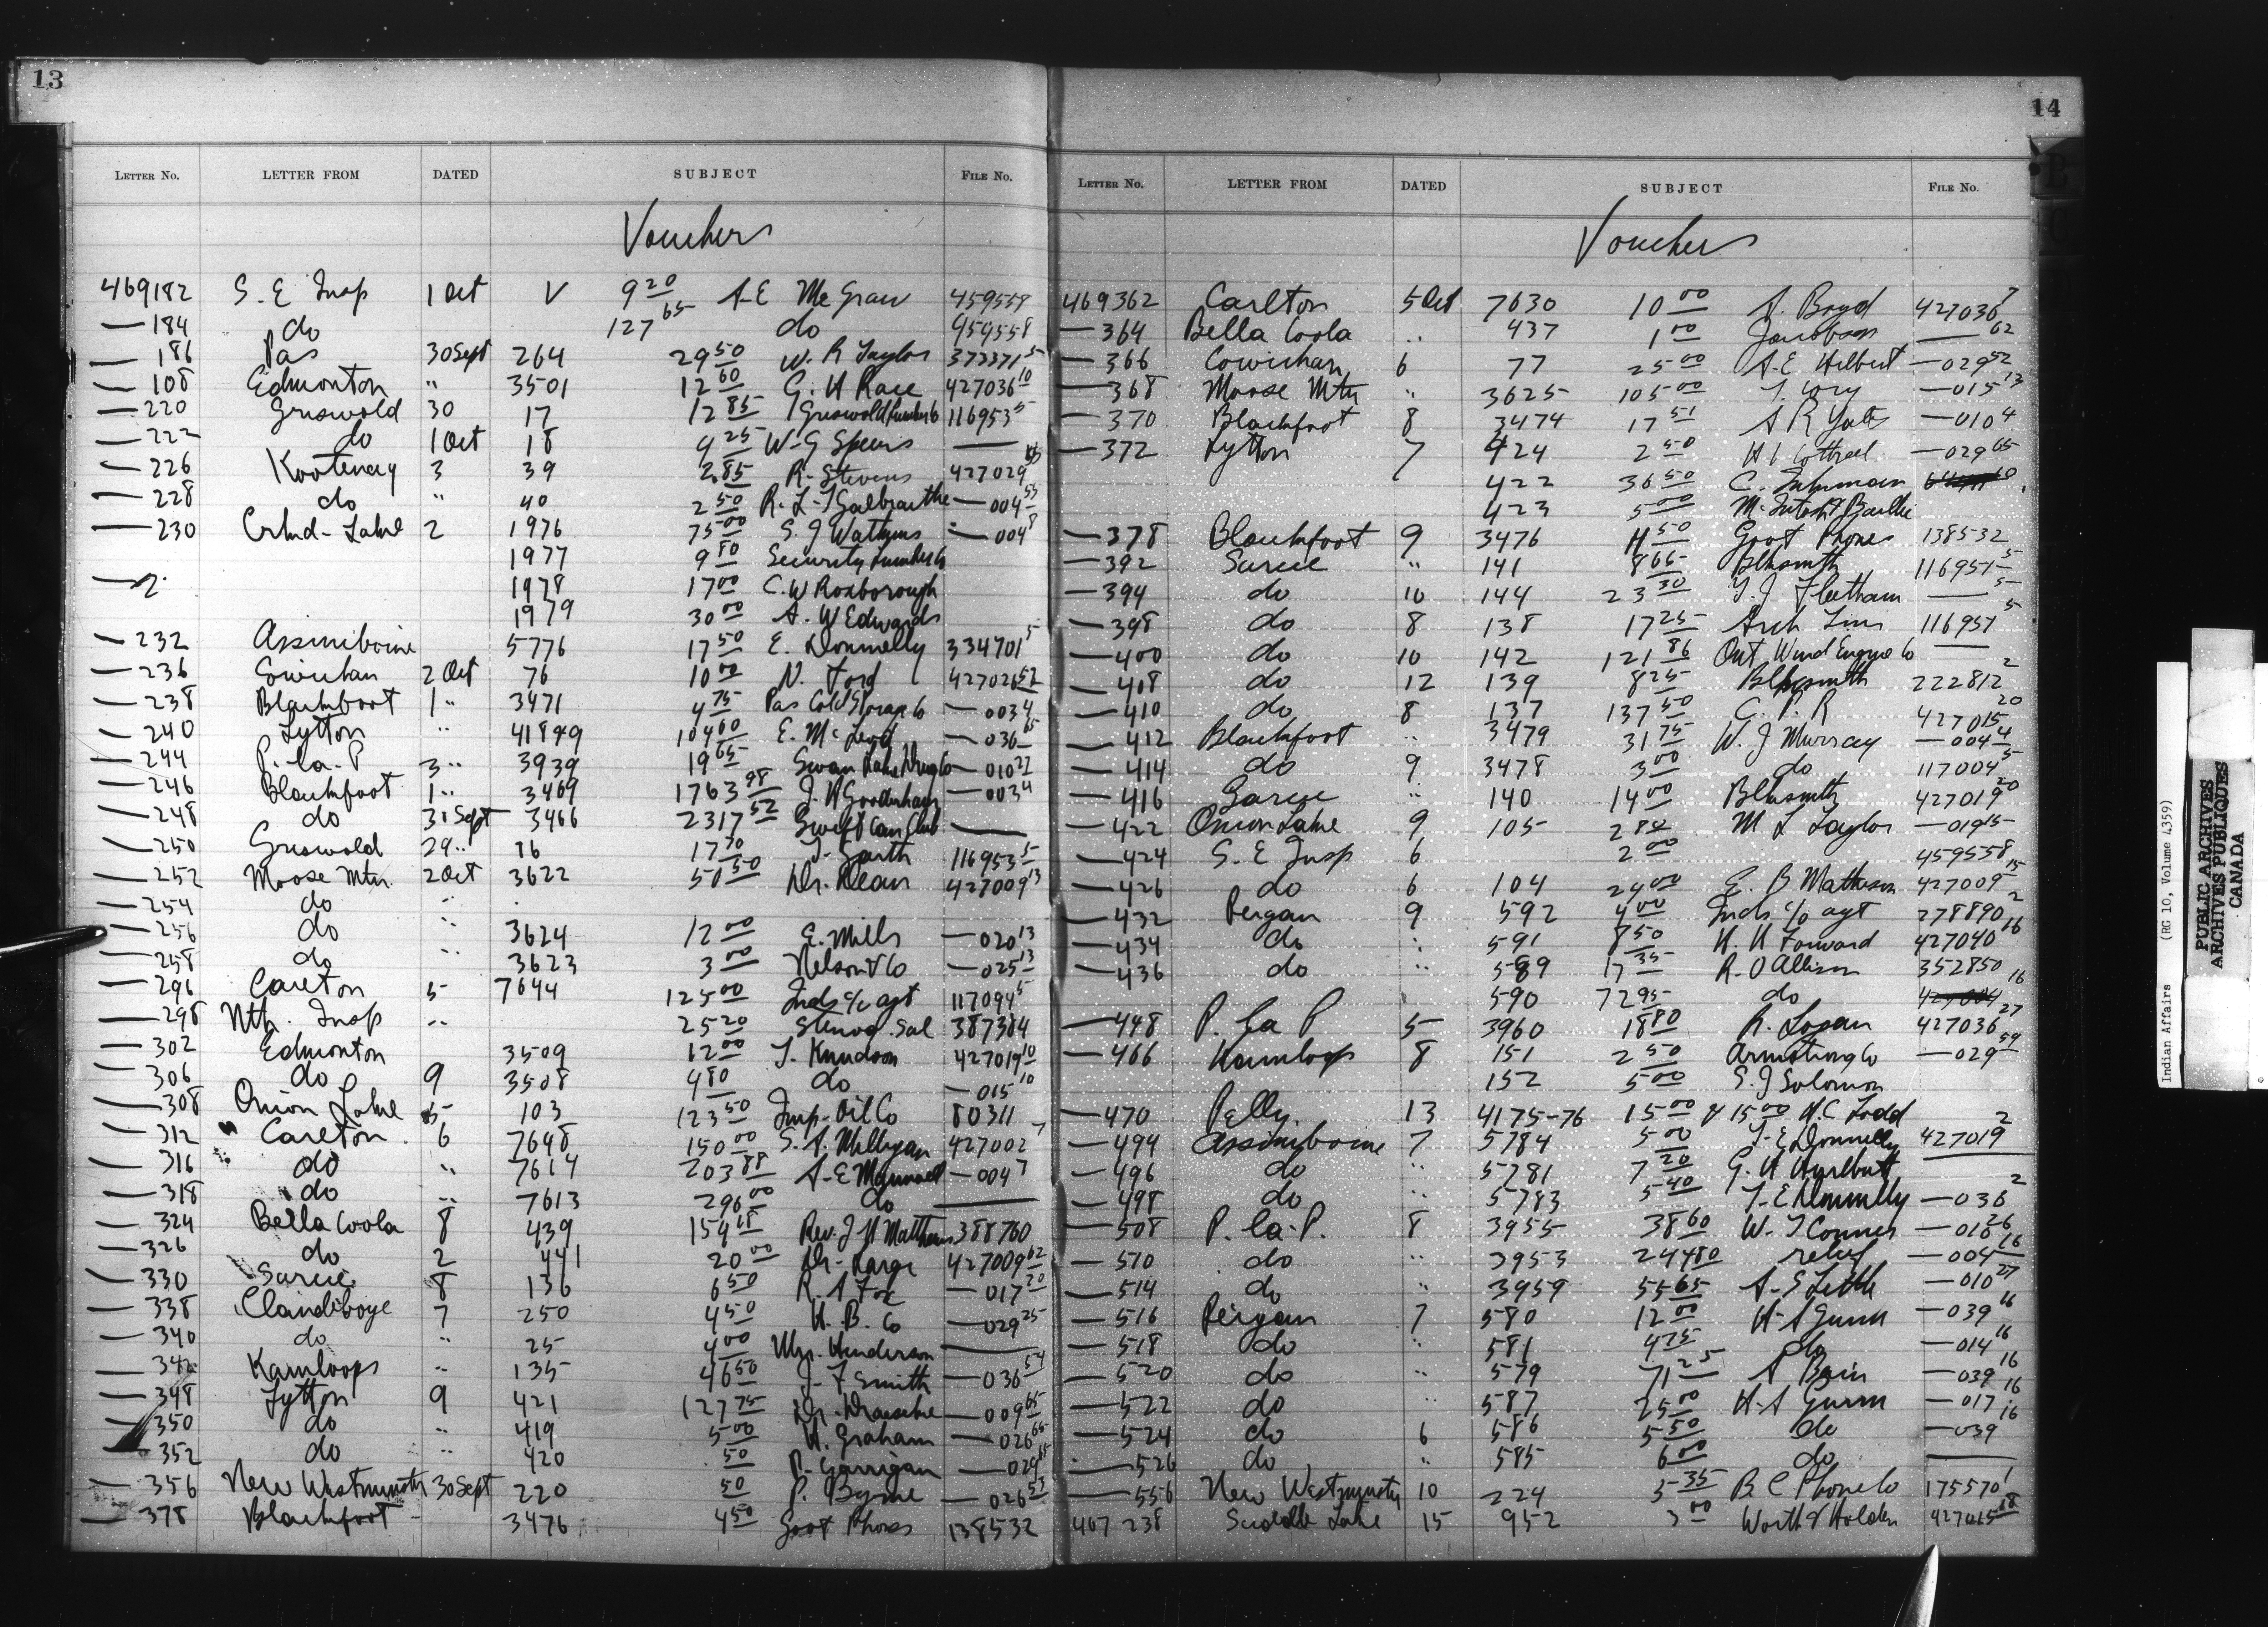 13
LETTER NO. LETTER FROM DATED SUBJECT FILE NO.
Vouchers
469182 S. E Insp 1 Oct V 9 20 A-E McGraw 459558
— 184 do 127 65 do 459558
— 186 Pas 30 Sept 264 29 50 W. R Taylor 373371 5
— 108 Edmonton " 3501 12 60 G. H Race 427036 10
— 220 Griswold 30 17 12 85 Griswold Lumber Co 116953 5
— 222 do 1 Oct 18 4 25 W-G Speers —
— 226 Kootenay 3 39 2.85 R. Stevens 427029
— 228 do " 40 2 50 R. L-T Galbraithe — 004 55
— 230 Crkd-Lake 2 1976 75 00 S. J Watkins — 004 8
1977 9 80 Security Lumber Co
1978 17 00 C. W Roxborough
1979 30 00 A. W Edwards
— 232 Assiniboine 5776 17 50 E. Donnelly 334701 5
— 236 Cowichan 2 Oct 76 10 00 N. Ford 427026 52
— 238 Blackfoot 1 " 3471 4 75 Pas Cold Storage Co — 003 4
— 240 Lytton " 418 & 9 104 60 E. McLeod — 036 65
— 244 P. la-P 3 " 3939 19 65 Swan Lake Drug Co — 010 27
— 246 Blackfoot 1 " 3469 1763 98 J. H Gooderham — 003 4
— 248 do 31 Sept 3466 2317 52 Swift Can Club —
— 250 Griswold 29 " 16 17 70 J. Garth 116953 5
— 252 Moose Mtn. 2 Oct 3622 50 50 Dr. Dean 427009 13
— 254 do "
— 256 do " 3624 12 00 E. Mills — 020 13
— 258 do " 3623 3 00 Nelson & Co — 025 13
— 296 Carlton 5 7644 125 00 Inds c/o agt 117094 5
— 298 Nth. Insp " 25 20 Stenog. Sal 387384
— 302 Edmonton 3509 12 00 T. Knudson 427019 10
— 306 do 9 3508 4 80 do — 015 10
— 308 Onion Lake 5 103 123 50 Imp-Oil Co 80311
— 312 Carlton 6 7648 150 00 S. A. Milligan 427002 7
— 316 do " 7614 203 88 A-E — 004 7
— 318 do " 7613 296 00 do —
— 324 Bella Coola 8 439 154 18 Rev. J H Matthews 388760
— 326 do 2 441 20 00 Dr- 427009 62
— 330 Sarcie 8 136 6 50 R. A Fox — 017 20
— 338 Clandeboye 7 250 4 50 H. B. Co — 029 25
— 340 do " 25 4 00 Mrs. Henderson —
— 342 Kamloops " 135 46 50 J- F Smith — 036 54
— 348 Lytton 9 421 127 75 Dr. — 009 65
— 350 do " 419 5 00 H. Graham — 026 65
— 352 do " 420 50 P- Garrigan — 029 65
— 356 New Westminster 30 Sept 220 50 P. Byrne — 026 53
— 378 Blackfoot - 3476 4 50 Govt Phones 138532
14
LETTER NO. LETTER FROM DATED SUBJECT FILE NO.
Vouchers
469362 Carlton 5 Oct 7630 10 00 A. Boyd 427036 7
— 364 Bella Coola " 437 1 00 Jacobson — 62
— 366 Cowichan 6 77 25 00 A-E Hilbert — 029 52
— 368 Moose Mtn " 3625 105 00 T. Cory — 015 13
— 370 Blackfoot 8 3474 17 51 A R Yates — 010 4
— 372 Lytton 7 424 2 50 H L Cottrell — 029 65
422 36 50 C.
423 5 00 McIntosh & Baillie
— 378 Blackfoot 9 3476 4 50 Govt Phones 138532
— 392 Sarcie " 141 8 65 Blksmith 116957 5
— 394 do 10 144 23 30 T. J Fleetham — 5
— 398 do 8 138 17 25 Arch 116957 5
— 400 do 10 142 121 86 Ont Wind Engine Co —
— 408 do 12 139 8 25 Blksmith 222812 2
— 410 do 8 137 137 50 C. P. R 427015 20
— 412 Blackfoot " 3479 31 75 W. J Murray — 004 4
— 414 do 9 3478 3 00 do 117004 5
— 416 Sarcie " 140 14 00 Blksmith 427019 20
— 422 Onion Lake 9 105 2 80 M L Taylor — 019 15
— 424 S. E Insp 6 2 00 459558
— 426 do 6 104 24 00 E. B Matheson 427009 15
— 432 Peigan 9 592 4 00 Inds c/o agt 278890 2
— 434 do " 591 8 50 H. H Forward 427040 16
— 436 do " 589 17 35 R. O Allison 352850
590 72 95 do 427004 16
— 448 P. la P 5 3960 18 80 R. Logan 427036 27
— 466 Kamloops 8 151 2 50 Armstrong Co — 029 59
152 5 00 S. J Solomon
— 470 Pelly 13 4175-76 15 00 & 15 00 H. C Todd
— 494 Assiniboine 7 5784 5 00 T-E Donnelly 427019 2
— 496 do " 5781 7 20 G. H Hurlbutt
— 498 do " 5783 5 40 T-E Donnelly — 036 2
— 508 P. la-P. 8 3955 38 60 W. J Connes — 016 26
— 510 do " 3953 244 80 relief — 004 16
— 514 do " 3959 55 65 A-S Little — 010 27
— 516 Peigan 7 580 12 00 H-A Gunn — 039 16
— 518 do " 581 4 75 do — 014 16
— 520 do " 579 71 25 A Bain — 039 16
— 522 do " 587 25 00 H-A Gunn — 017 16
— 524 do 6 586 5 50 do — 039 16
— 526 do " 585 6 00 do —
— 556 New Westminster 10 224 5 35 B C Phone Co 175570 1
467 238 Saddle Lake 15 952 3 00 Worth & Holden 427015 18
Indian Affairs (RG 10, Volume 4359)
PUBLIC ARCHIVES
ARCHIVES PUBLIQUES
CANADA